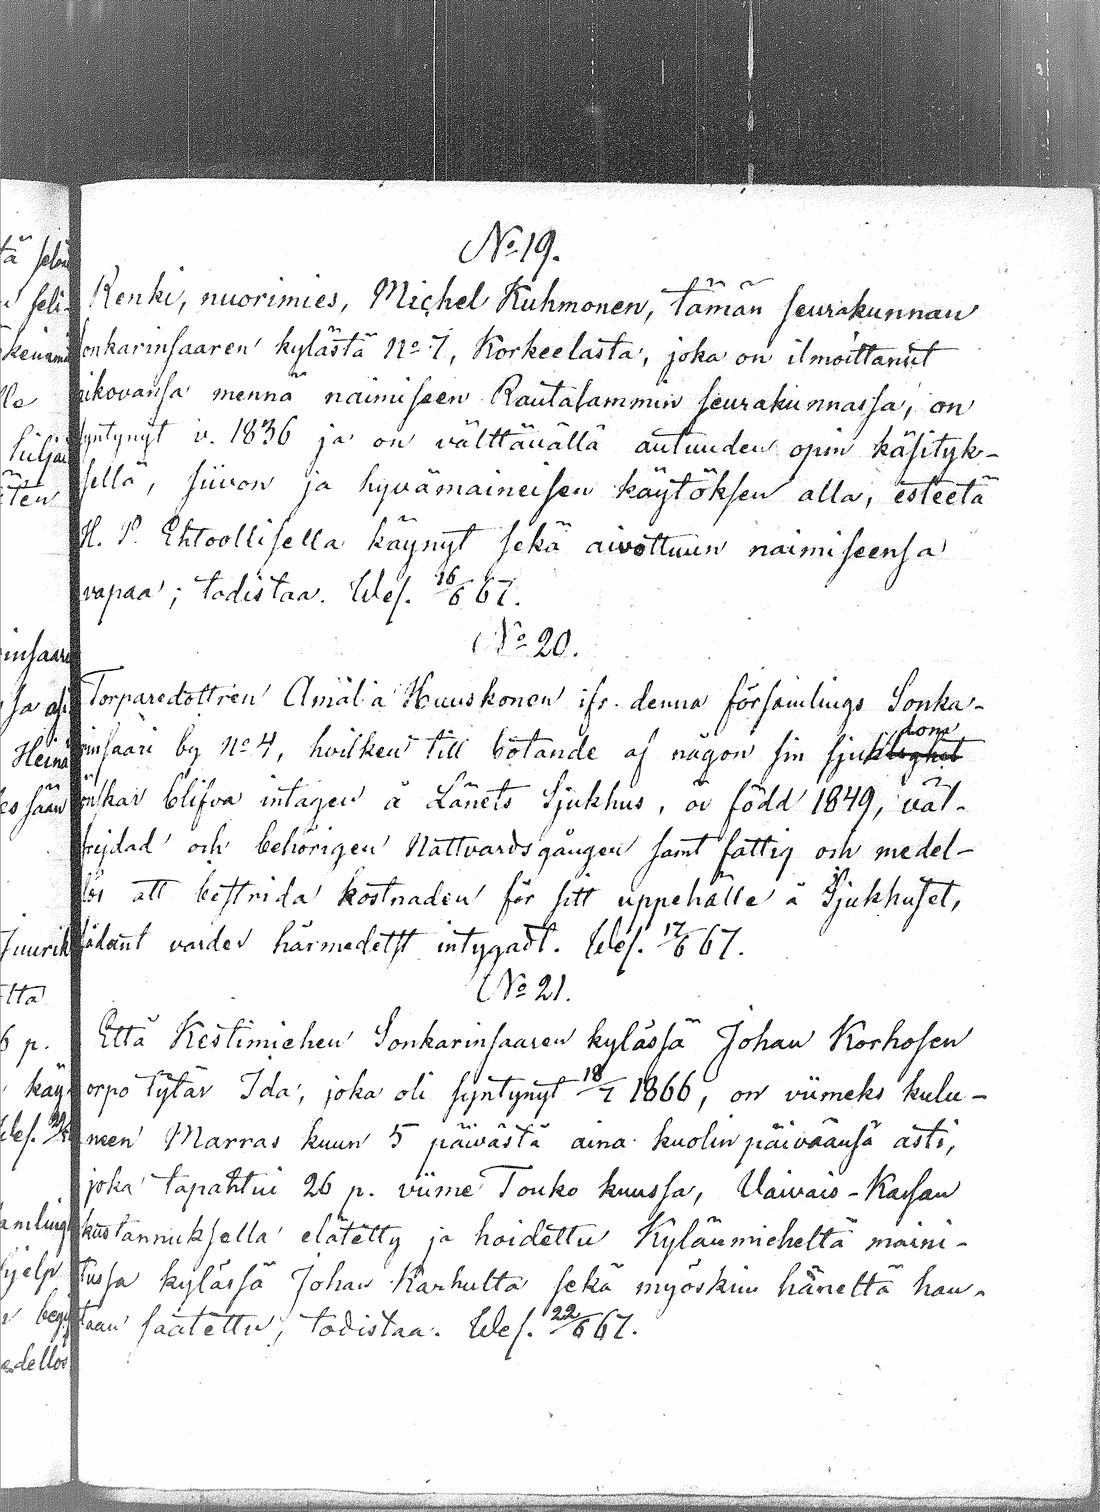 No 19.
Renki, nuorimies, Michel Kuhmonen, tämän seurakunnan
Sonkarinsaaren kylästä No 7, Korkeelasta, joka on ilmoittanut
aikovansa mennä naimiseen Rautalammin seurakunnassa, on
syntynyt v. 1836 ja on välttävällä autuuden opin käsityk-
sellä, siivon ja hyvämaineisen käytöksen alla, esteetä
H. P. Ehtoollisella käynyt sekä aivottuun naimiseensa
vapaa; todistaa. Wes. 16/6 67.
No 20.
Torparedottren Amalia Huuskonen ifr. denna församlings Sonka-
rinsaari by No 4, hvilken till botande af någon sin sjuklighet dom
önskar blifva intagen å Länets Sjukhus, är född 1849, väl-
frejdad och behörigen Nattvardsgången samt fattig och medel-
lös att bestrida kostnaden för sitt uppehälle å Sjukhuset,
sådant varder härmedelst intygadt. Wes. 17/6 67.
No 21.
Että Kestimiehen Sonkarinsaaren kylässä Johan Korhosen
orpo tytär Ida, joka oli syntynyt 18/7 1866, on viimeks kulu-
neen Marras kuun 5 päivästä aina kuolinpäiväänsä asti,
joka tapahtui 26 p. viime Touko kuussa, Vaivais-Kassan
kustannuksella elätetty ja hoidettu Kylänmieheltä maini-
tussa kylässä Johan Karhulta sekä myöskin häneltä hau-
taan saatettu; todistaa. Wes. 22/6 67.